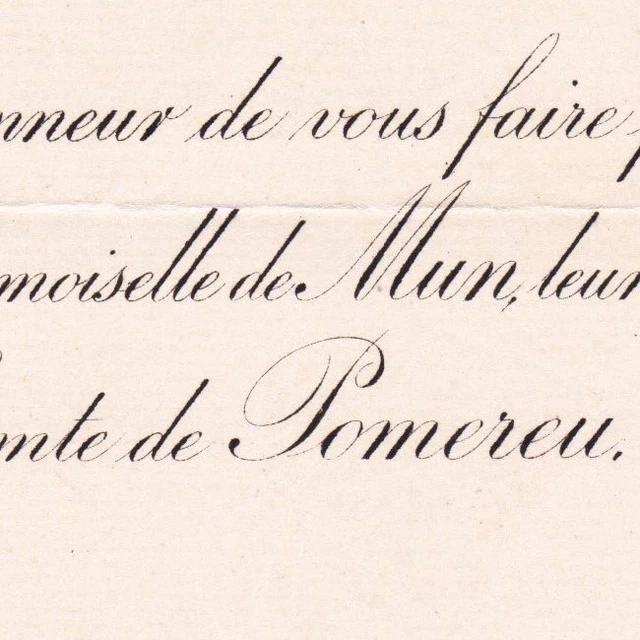 nneur de vous faire
moiselle de Mun, leur
mte de Pomereu.